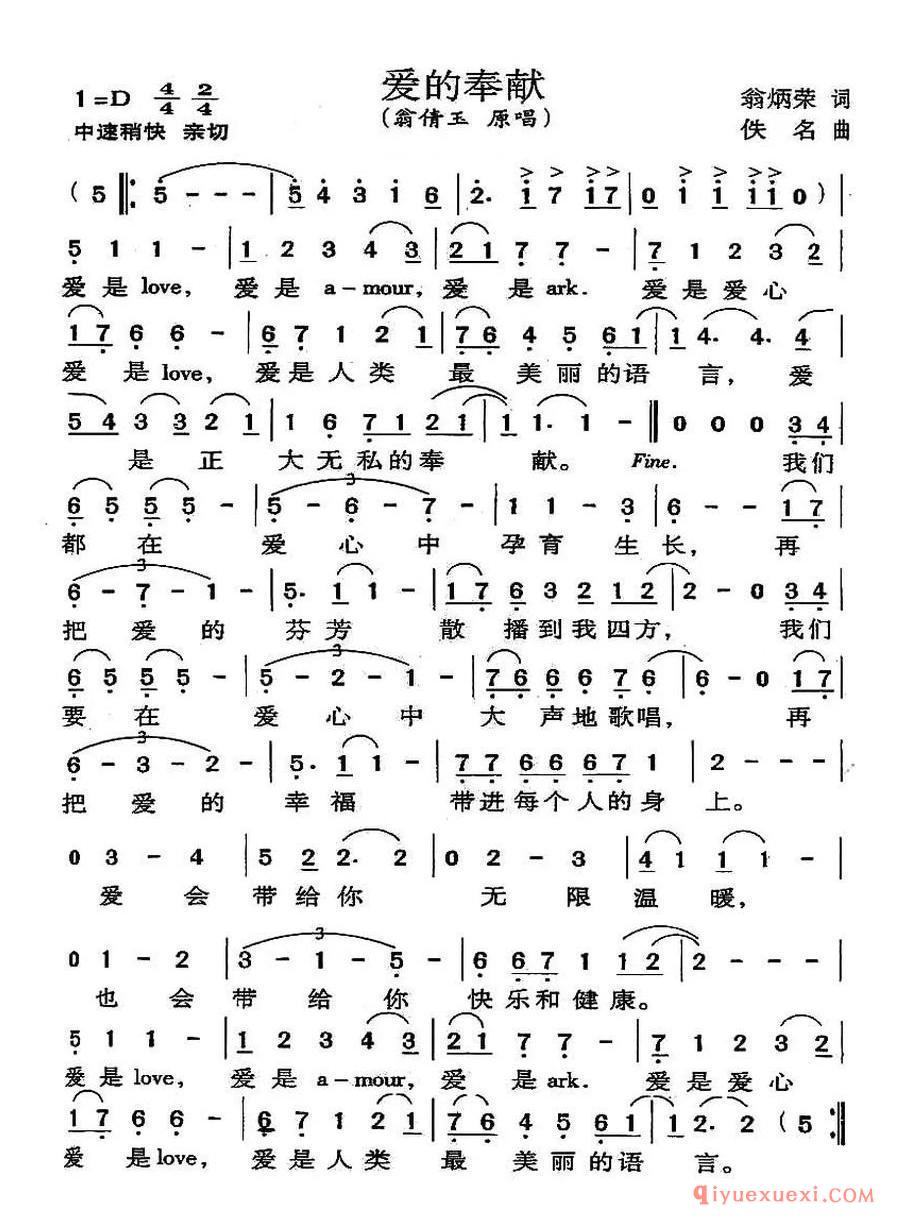 爱的奉献
1=D 4/4 2/4
(翁倩玉 原唱)
翁炳荣 词
中速稍快 亲切
佚 名 曲
(5 ‖: 5 - - - | 5 4 3 1 6 | 2· 1 7 1 7 | 0 1 1 1 1 0) |
5 1 1 - | 1 2 3 4 3 | 2 1 7 7 - | 7 1 2 3 2 |
爱是love, 爱是 a-mour, 爱 是ark. 爱是爱心
1 7 6 6 - | 6 7 1 2 1 | 7 6 4 5 6 1 | 1 4· 4· 4 |
爱 是love, 爱是人类 最 美丽的语 言, 爱
5 4 3 3 2 1 | 1 6 7 1 2 1 | 1 1· 1 - ‖ 0 0 0 3 4 |
是 正 大无私的奉 献。 Fine. 我们
6 5 5 5 - | 5 - 6 - 7 - | 1 1 - 3 | 6 - - 1 7 |
都 在 爱 心 中 孕育 生长, 再
6 - 7 - 1 - | 5· 1 1 - | 1 7 6 3 2 1 2 | 2 - 0 3 4 |
把 爱 的 芬芳 散 播到我四方, 我们
6 5 5 5 - | 5 - 2 - 1 - | 7 6 6 6 7 6 | 6 - 0 1 7 |
要 在 爱 心 中 大 声地歌唱, 再
6 - 3 - 2 - | 5· 1 1 - | 7 7 6 6 6 7 1 | 2 - - - |
把 爱 的 幸 福 带进每个人的身 上。
0 3 - 4 | 5 2 2· 2 | 0 2 - 3 | 4 1 1 1 - |
爱 会 带给你 无 限 温 暖,
0 1 - 2 | 3 - 1 - 5 - | 6 6 7 1 1 2 | 2 - - - |
也 会 带 给 你 快乐和健康。
5 1 1 - | 1 2 3 4 3 | 2 1 7 7 - | 7 1 2 3 2 |
爱是love, 爱是 a-mour, 爱 是ark. 爱是爱心
1 7 6 6 - | 6 7 1 2 1 | 7 6 4 5 6 1 | 1 2· 2 (5 :‖
爱 是love, 爱是人类 最 美丽的语 言。
qiyuexuexi.com